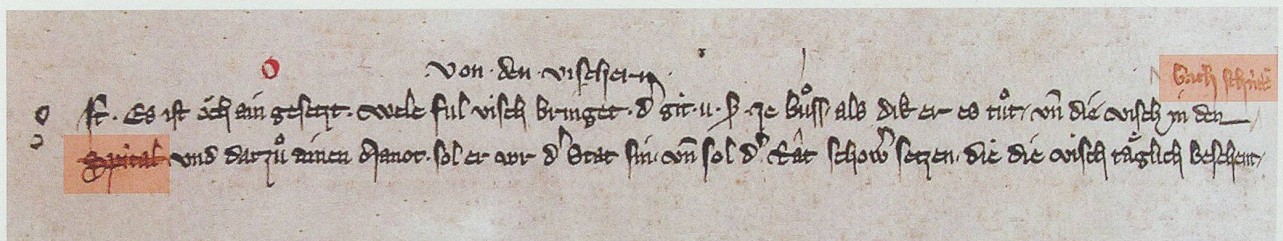 ·Von·den·vischern·
bach schüt
St. Es ist öch ain gesetzt. Wele ful visch bringet. d' git. v. ß. ze bůss als dik er es tůt/ vn̄ die visch in den
Spital und darzů ainen Manot. sol er vor d' Stat sin. vn̄ sol d' Rât schow' setzen. die die visch täglich beschent/